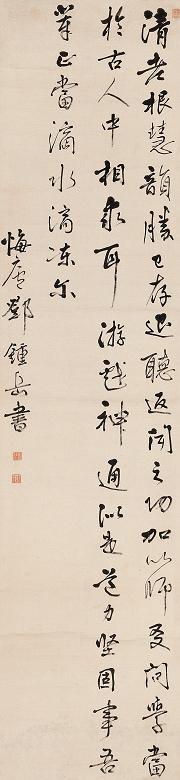 清老根慧韻勝已存還聽返聞之功加以師友問學當
於古人中相求耳游戲神通似是道力堅固事吾
輩正當滴水滴凍尔
悔廬鄧鍾岳書